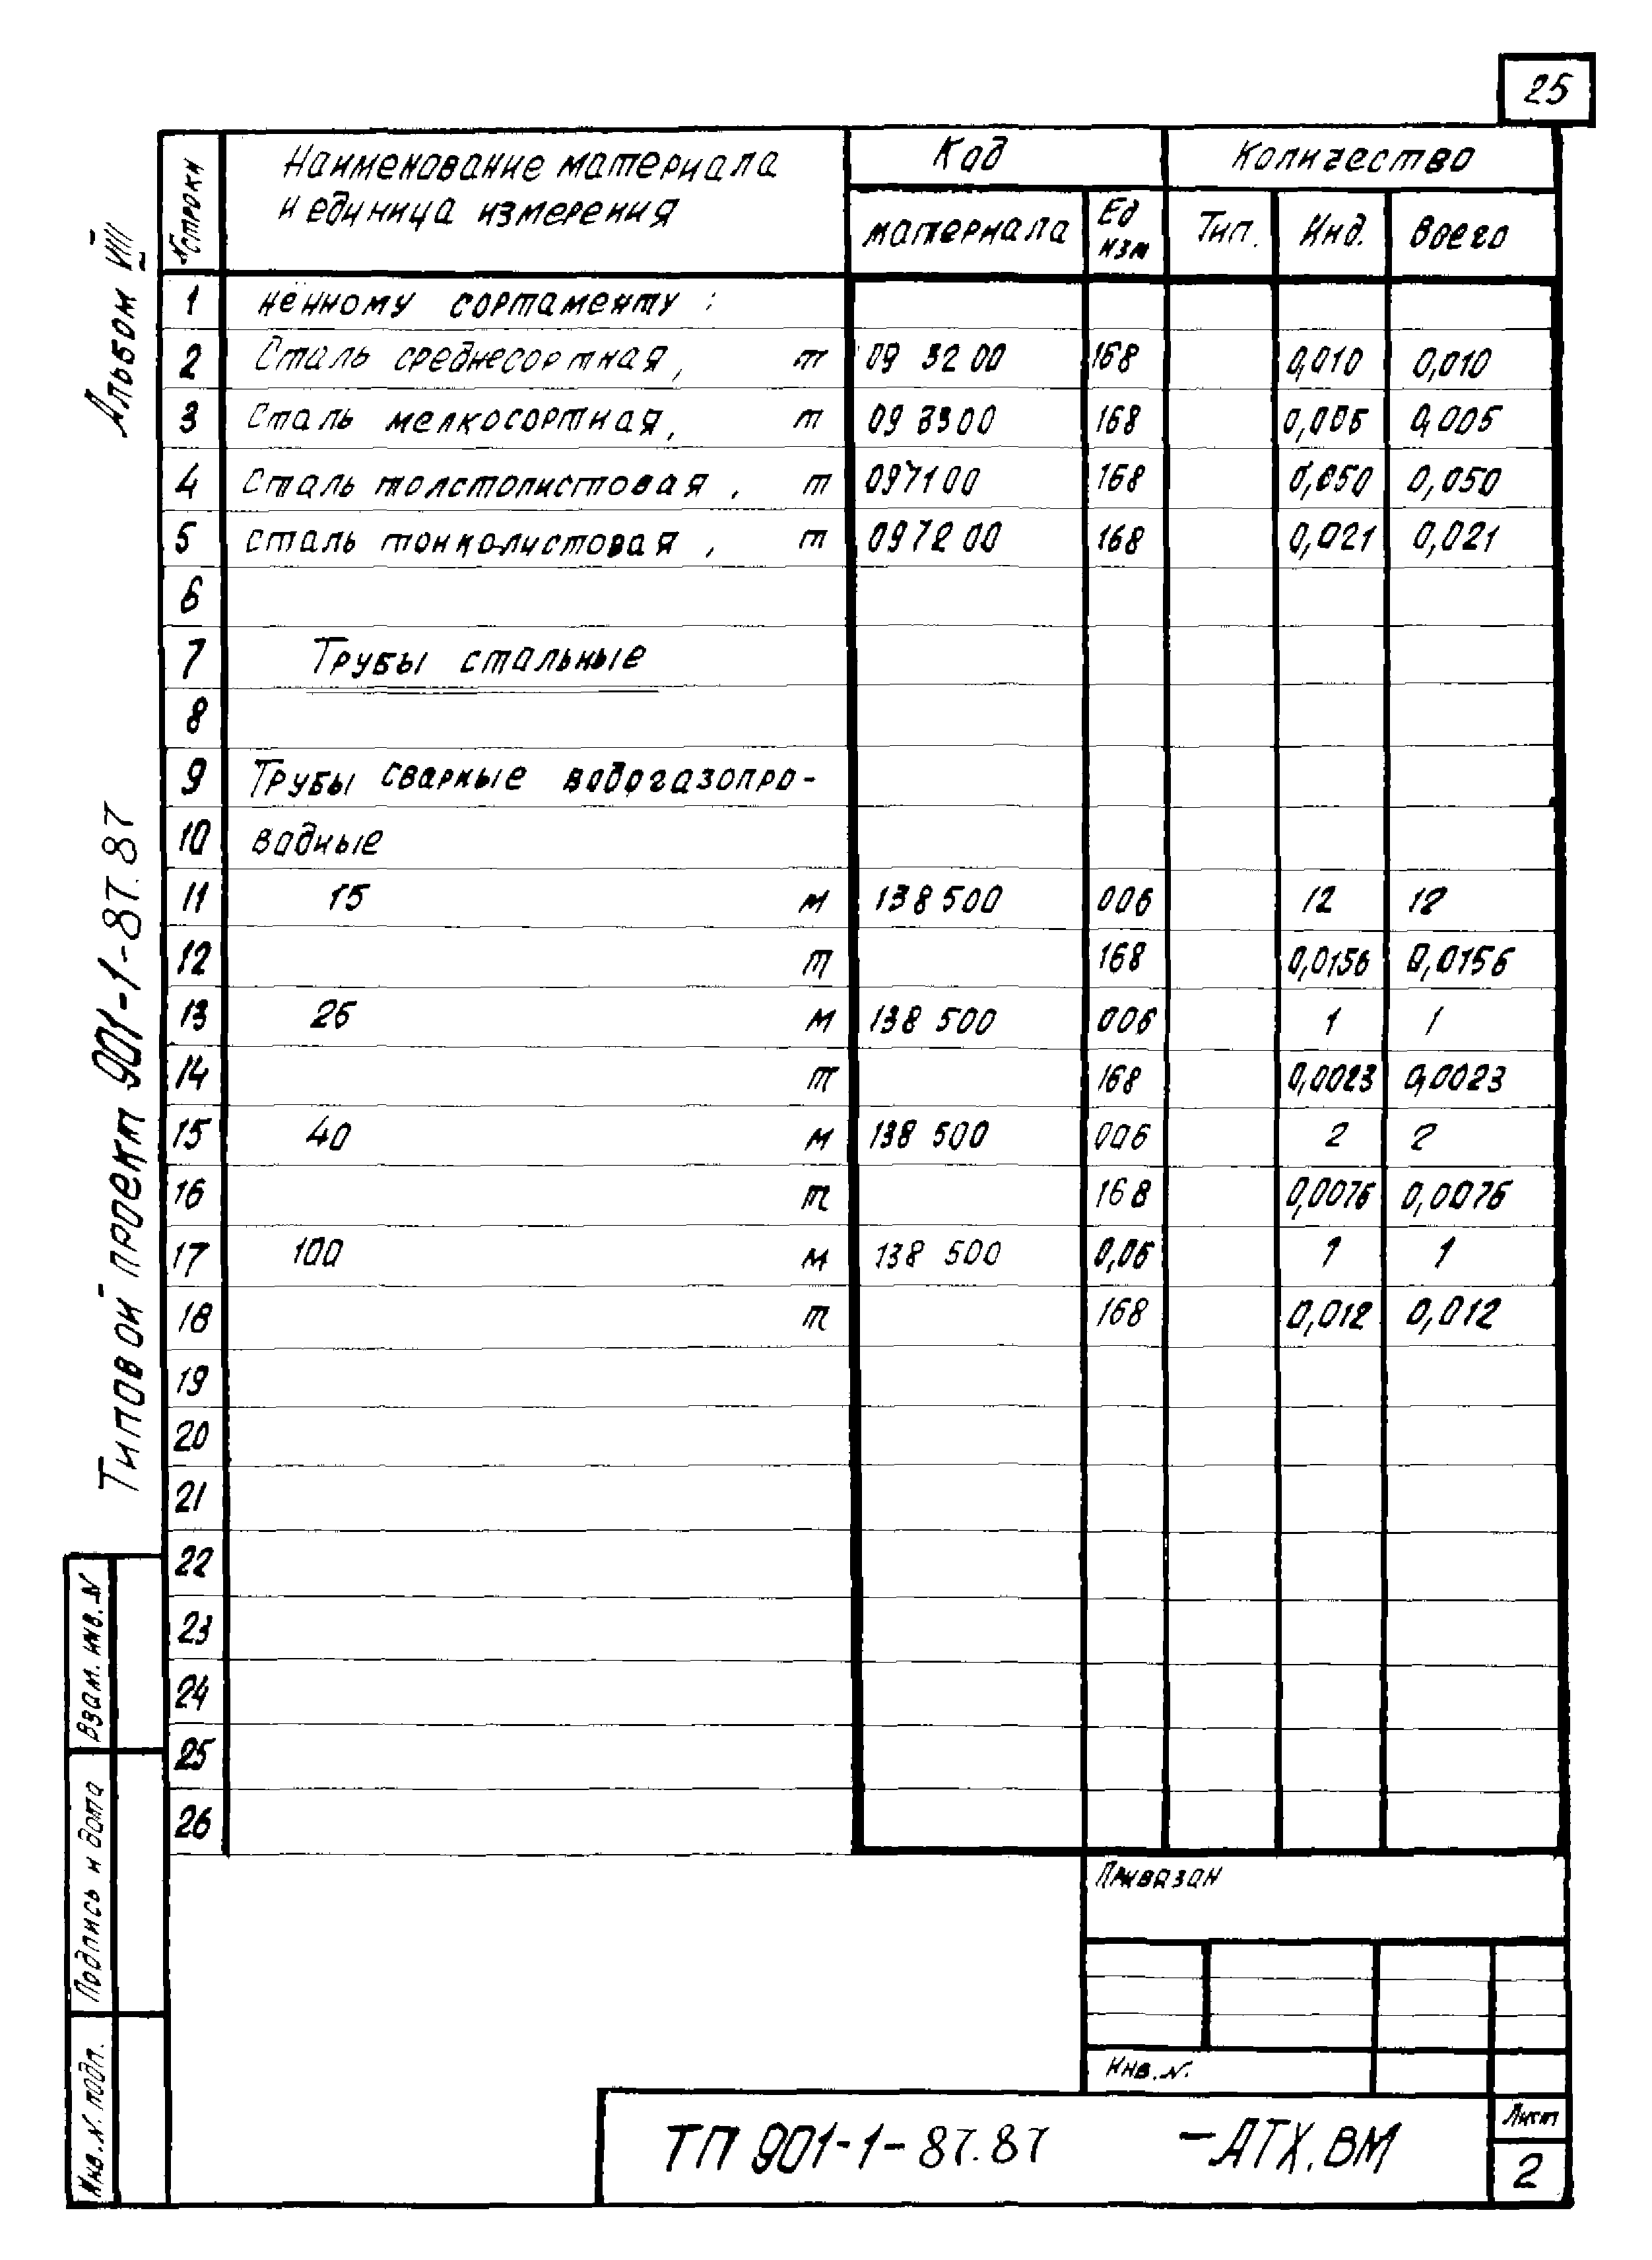 25
Альбом VIII
Типовой проект 901-1-87.87
N строки
Наименование материала
и единица измерения
Код
Количество
материала
Ед
изм
Тип.
Инд.
Всего
1 нённому сортаменту :
2 Сталь среднесортная, т 09 32 00 168 0,010 0,010
3 Сталь мелкосортная, т 09 3300 168 0,005 0,005
4 Сталь толстолистовая, т 097100 168 0,050 0,050
5 сталь тонколистовая, т 0972 00 168 0,021 0,021
6
7 Трубы стальные
8
9 Трубы сварные водогазопро-
10 водные
11 15 м 138 500 006 12 12
12 т 168 0,0156 0,0156
13 25 м 138 500 006 1 1
14 т 168 0,0023 0,0023
15 40 м 138 500 006 2 2
16 т 168 0,0076 0,0076
17 100 м 138 500 0,06 1 1
18 т 168 0,012 0,012
19
20
21
22
23
24
25
26
Взам. инв. N
Подпись и дата
Инв. N. подп.
Привязан
Инв. N.
ТП 901-1-87.87 -АТХ.ВМ
Лист
2